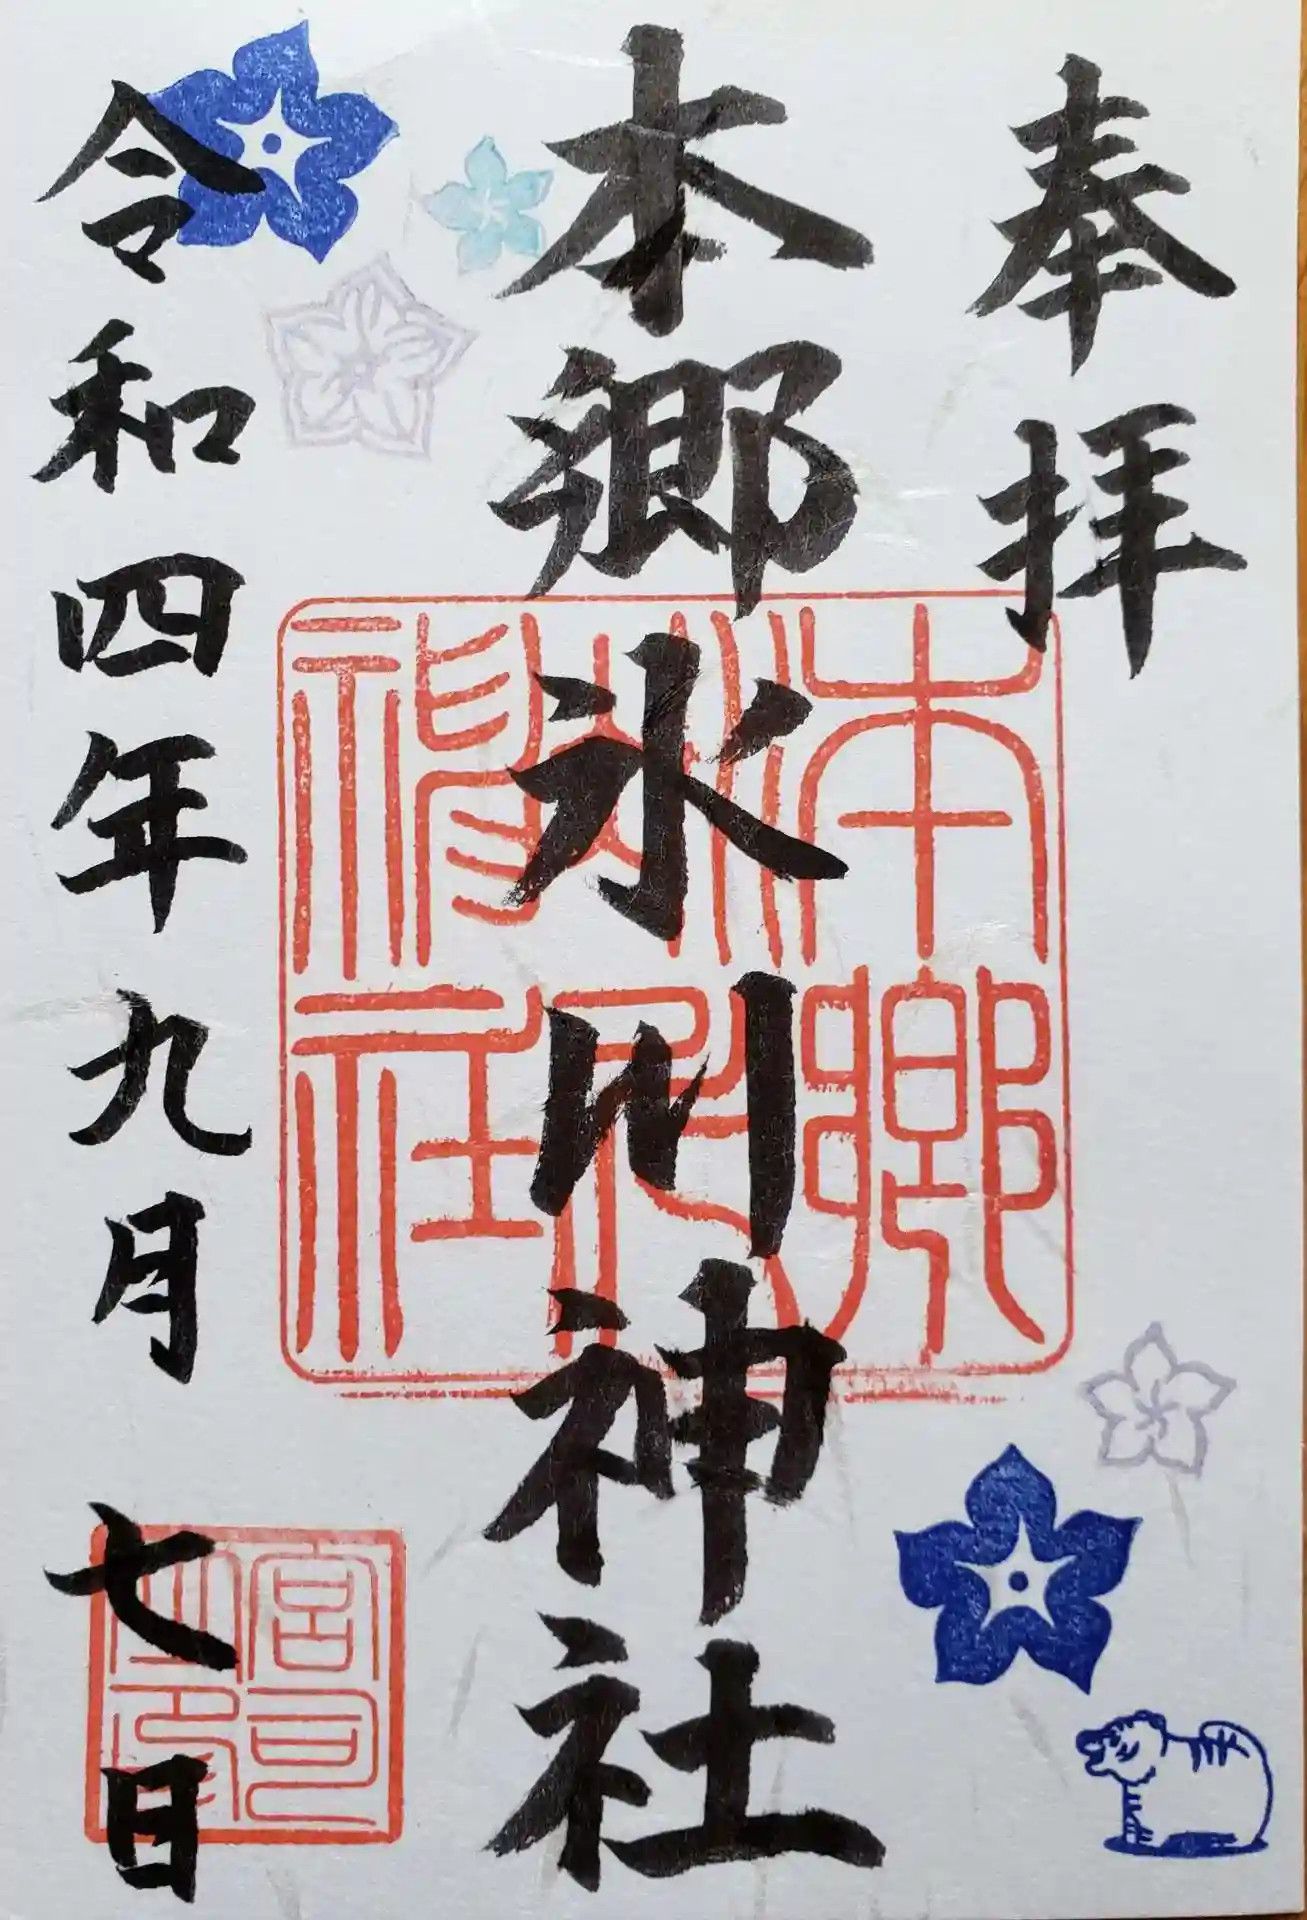 奉拝
本郷氷川神社
令和四年九月七日
本郷
氷川
神社
宮司
之印